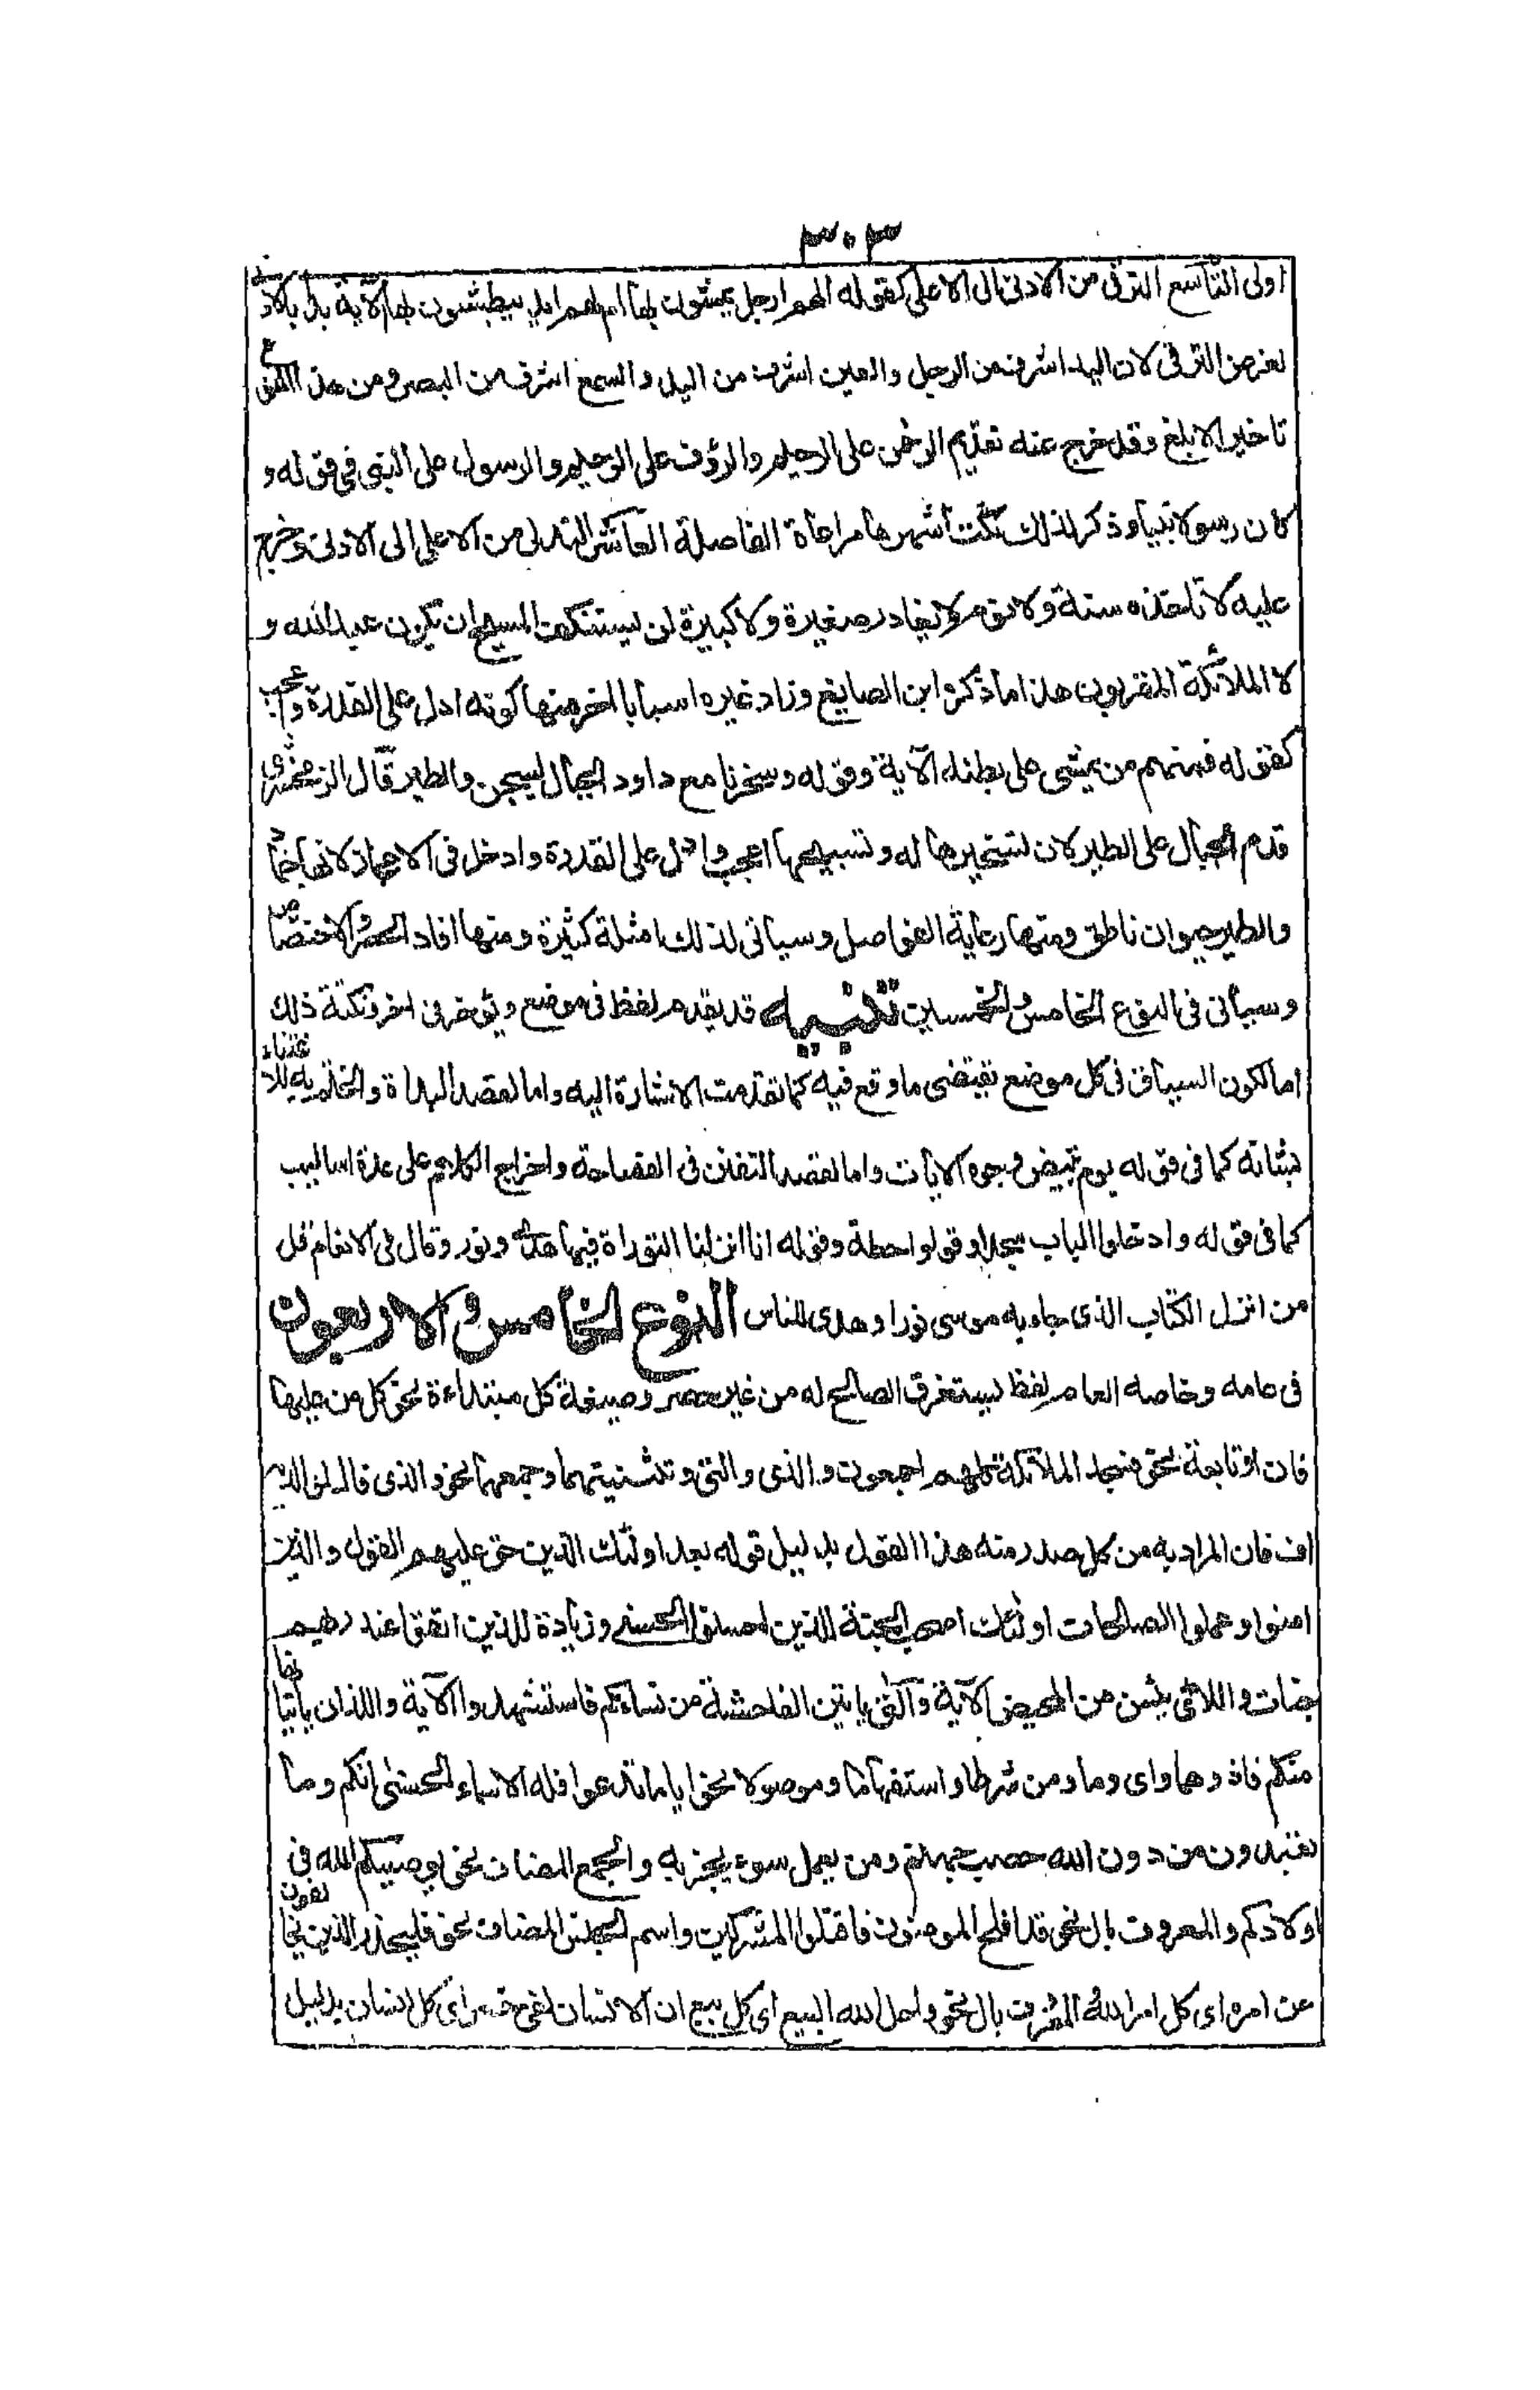 ٣٠٣
اولى التاسع الترقى من الادنى الى الاعلى كقوله الهم ارجل يمشون بها ام لهم ايد يبطشون بها الآية بدأ بالادنى
لغرض الترقى لان اليد اشرف من الرجل والعين اشرف من اليد والسمع اشرف من البصر ومن هذا النوع
تاخير الابلغ وقد خرج عنه تقديم الرحمن على الرحيم والرؤف على الرحيم والرسول على النبى فى قوله و
كان رسولا نبيا وذكر لذلك نكت اشهرها مراعاة الفاصلة العاشر التدلى من الاعلى الى الادنى وخرج
عليه لا تاخذه سنة ولا نوم لا يغادر صغيرة ولا كبيرة لن يستنكف المسيح ان يكون عبد الله و
لا الملائكة المقربون هذا ما ذكره ابن الصايغ وزاد غيره اسبابا اخر منها كونه ادل على القدرة واعجب
كقوله فمنهم من يمشى على بطنه الآية وقوله وسخرنا مع داود الجبال يسبحن والطير قال الزمخشرى
قدم الجبال على الطير لان تسخيرها له وتسبيحها اعجب وادل على القدرة وادخل فى الاعجاز لانها جماد
والطير حيوان ناطق ومنها رعاية الفواصل وسياتى لذلك امثلة كثيرة ومنها افاد الحصر والاختصاص
وسياتى فى النوع الخامس والخمسين تنبيه قد يقدم لفظ فى موضع ويؤخر فى اخر ونكتة ذلك
اما لكون السياق فى كل موضع يقتضى ما وقع فيه كما تقدمت الاشارة اليه واما لقصد البداة والختم به للاعتناء
بشانه كما فى قوله يوم تبيض وجوه الايات واما لقصد التفنن فى الفصاحة واخراج الكلام على عدة اساليب
كما فى قوله وادخلوا الباب سجدا وقولوا حطة وقوله انا انزلنا التوراة فيها هدى ونور وقال فى الانعام قل
من انزل الكتاب الذى جاء به موسى نورا وهدى للناس النوع الخامس والاربعون
فى عامه وخاصه العام لفظ يستغرق الصالح له من غير حصر وصيغة كل مبتداءة نحو كل من عليها
فان او تابعة نحو فسجد الملائكة كلهم اجمعون والذى والتى وتثنيتهما وجمعهما نحو والذى قال لوالديه
اف فان المراد به من كل صدر منه هذا القول بدليل قوله بعد اولئك الذين حق عليهم القول والذين
امنوا وعملوا الصالحات اولئك اصحب الجنة للذين احسنوا الحسنى وزيادة للذين اتقوا عند ربهم
جنات واللائى يئسن من المحيض الآية والتى ياتين الفاحشة من نساءكم فاستشهدوا الآية واللذان ياتيانها
منكم فاذوهما واى وما ومن شرطا واستفهاما وموصولا نحو ايا ما تدعوا فله الاسماء الحسنى انكم وما
تعبدون من دون الله حصب جهنم ومن يعمل سوء يجز به والجمع المضاف نحو يوصيكم الله فى
اولادكم والمعروف بال نحو قد افلح المومنون فاقتلوا المشركين واسم الجنس المضاف نحو فليحذر الذين يخالفون
عن امره اى كل امر الله المعرف بال نحو واحل الله البيع اى كل بيع ان الانسان لفى خسر اى كل انسان بدليل